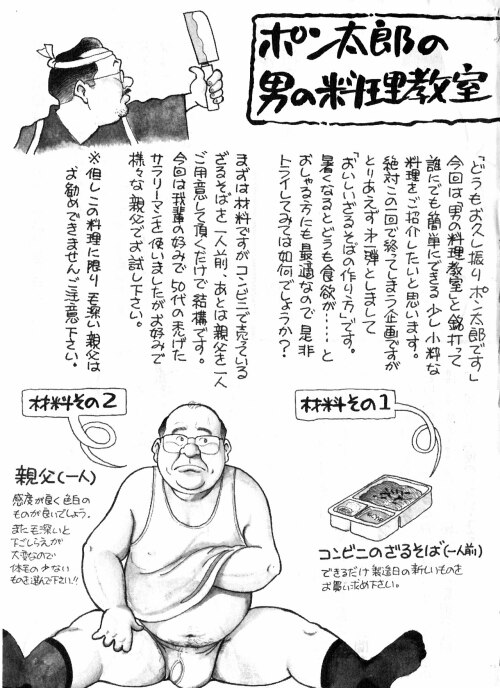 ポン太郎の
男の料理教室
「どうもお久し振りポン太郎です」
今回は「男の料理教室」と銘打って
誰にでも簡単にできる少し小粋な
料理をご紹介したいと思います。
絶対この一回で終ってしまう企画ですが
とりあえず第一弾としまして
「おいしいざるそばの作り方」です。
暑くなるとどうも食欲が……と
おっしゃる方にも最適なので是非
トライしてみては如何でしょうか？
まずは材料ですがコンビニで売っている
ざるそばを一人前、あとは親父を一人
ご用意して頂くだけで結構です。
今回は我輩の好みで50代の禿げた
サラリーマンを使いましたがお好みで
様々な親父でお試し下さい。
※但しこの料理に限り毛深い親父は
お勧めできませんご注意下さい。
材料その1
コンビニのざるそば(一人前)
できるだけ製造日の新しいものを
お買い求め下さい。
材料その2
親父(一人)
感度が良く色白の
ものが良いでしょう。
また毛深いと
下ごしらえが
大変なので
体毛の少ない
ものを選んで下さい!!